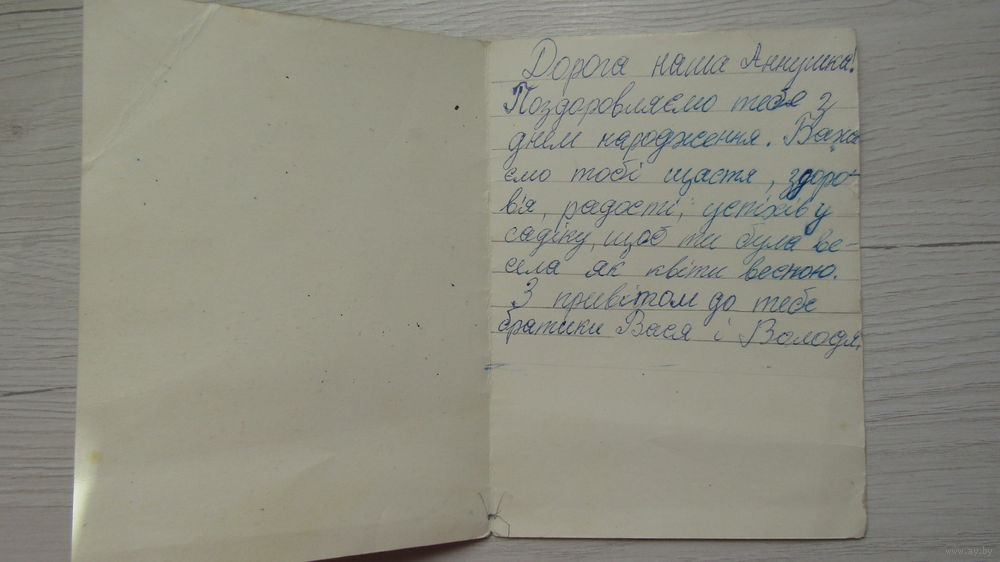 Дорога наша Аннушка!
Поздоровляємо тебе з
днем народження. Бажа
ємо тобі щастя, здоро-
в'я, радості, успіхів у
садіку, щоб ти була ве-
села як квіти весною.
З привітом до тебе
братики Вася і Володя.
www.ay.by